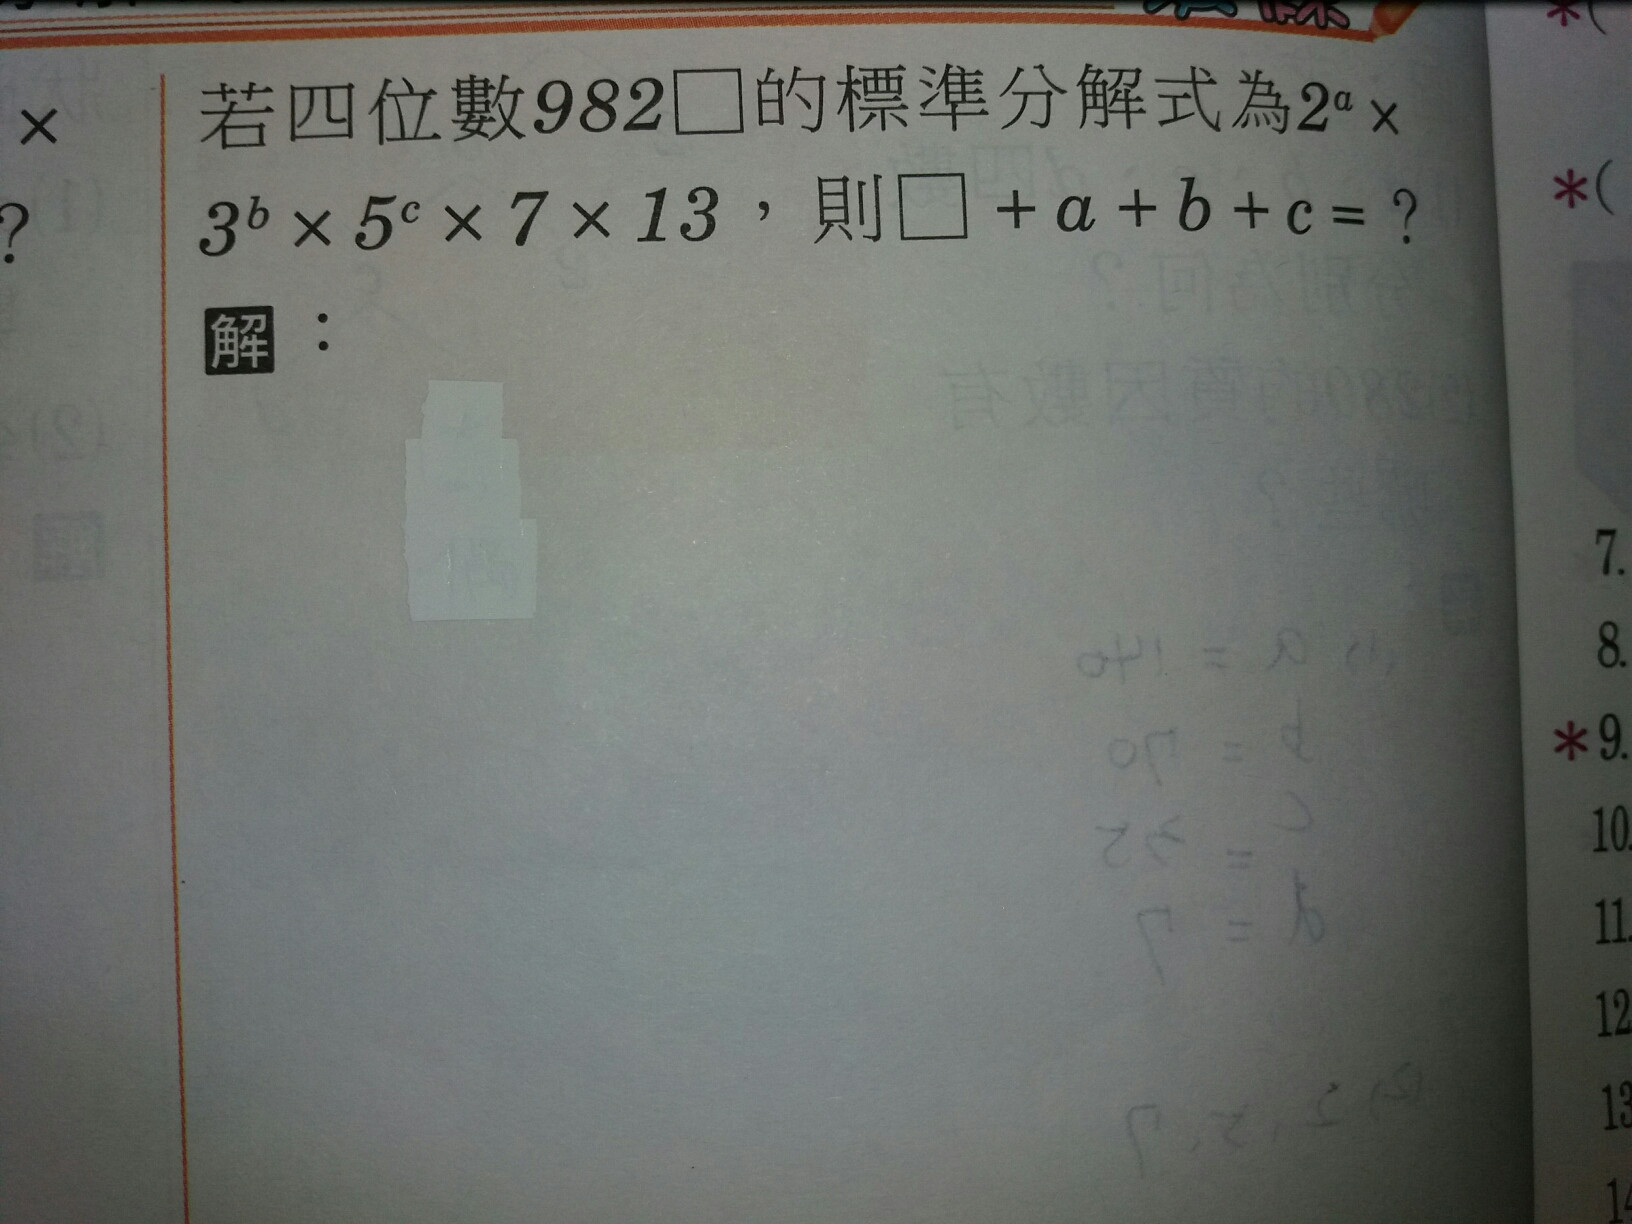 若四位數982□的標準分解式為2ᵃ ×
3ᵇ × 5ᶜ × 7 × 13，則□ + a + b + c = ？
解：
×
?
*(
*(
7.
8.
*9.
10.
11.
12
13
14